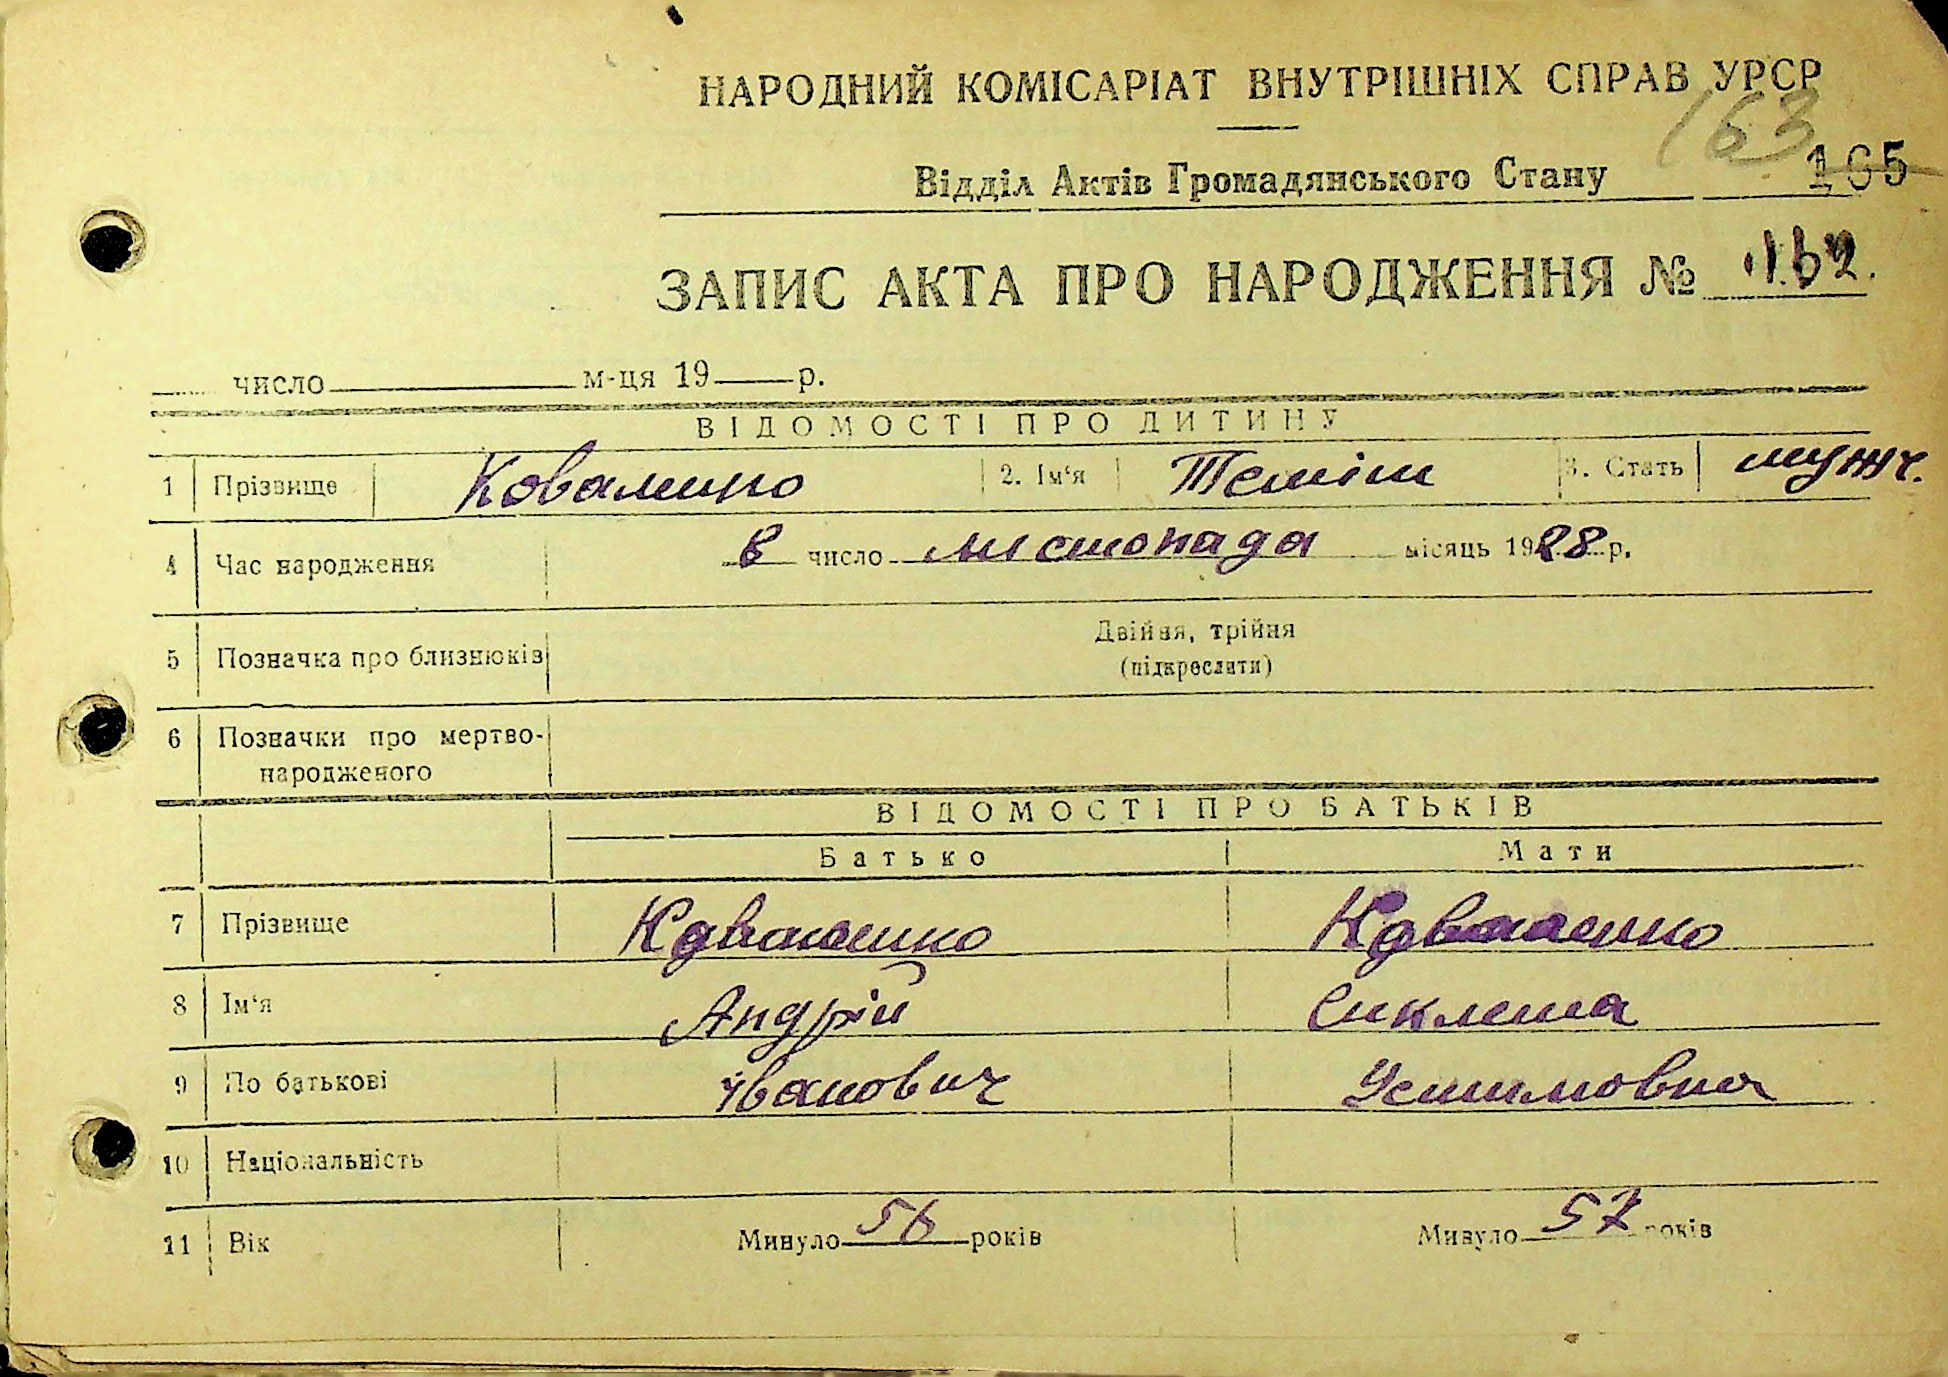 НАРОДНИЙ КОМІСАРІАТ ВНУТРІШНІХ СПРАВ УРСР
163
Відділ Актів Громадянського Стану 165
ЗАПИС АКТА ПРО НАРОДЖЕННЯ № 162.
число м-ця 19 р.
ВІДОМОСТІ ПРО ДИТИНУ
1 Прізвище 2. Ім'я 3. Стать мужч.
4 Час народження 8 число листопада місяць 1928 р.
5 Позначка про близнюків Двійня, трійня
(підкреслити)
6 Позначки про мертво-
народженого
ВІДОМОСТІ ПРО БАТЬКІВ
Батько Мати
7 Прізвище Коваленко Коваленко
8 Ім'я Андрій
9 По батькові Іванович Устимовна
10 Національність
11 Вік Минуло 56 років Минуло 57 років